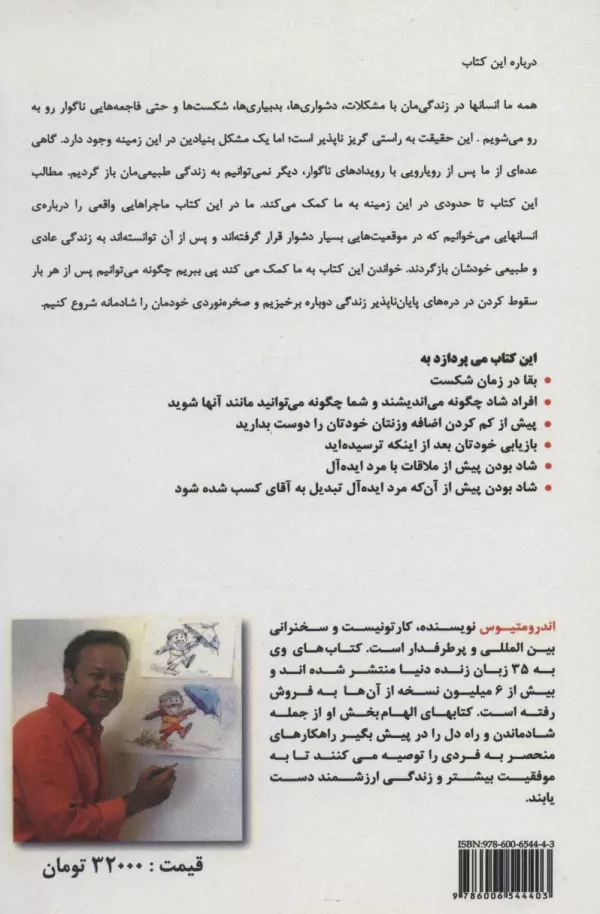 درباره این کتاب
همه ما انسانها در زندگی‌مان با مشکلات، دشواری‌ها، بدبیاری‌ها، شکست‌ها و حتی فاجعه‌هایی ناگوار رو به
رو می‌شویم . این حقیقت به راستی گریز ناپذیر است؛ اما یک مشکل بنیادین در این زمینه وجود دارد. گاهی
عده‌ای از ما پس از رویارویی با رویدادهای ناگوار، دیگر نمی‌توانیم به زندگی طبیعی‌مان باز گردیم. مطالب
این کتاب تا حدودی در این زمینه به ما کمک می‌کند. ما در این کتاب ماجراهایی واقعی را درباره‌ی
انسانهایی می‌خوانیم که در موقعیت‌هایی بسیار دشوار قرار گرفته‌اند و پس از آن توانسته‌اند به زندگی عادی
و طبیعی خودشان بازگردند. خواندن این کتاب به ما کمک می کند پی ببریم چگونه می‌توانیم پس از هر بار
سقوط کردن در دره‌های پایان‌ناپذیر زندگی دوباره برخیزیم و صخره‌نوردی خودمان را شادمانه شروع کنیم.
این کتاب می پردازد به
• بقا در زمان شکست
• افراد شاد چگونه می‌اندیشند و شما چگونه می‌توانید مانند آنها شوید
• پیش از کم کردن اضافه وزنتان خودتان را دوست بدارید
• بازیابی خودتان بعد از اینکه ترسیده‌اید
• شاد بودن پیش از ملاقات با مرد ایده‌آل
• شاد بودن پیش از آن‌که مرد ایده‌آل تبدیل به آقای کسب شده شود
اندرومتیوس نویسنده، کارتونیست و سخنرانی
بین المللی و پرطرفدار است. کتاب‌های وی
به ۳۵ زبان زنده دنیا منتشر شده اند و
بیش از ۶ میلیون نسخه از آن‌ها به فروش
رفته است. کتابهای الهام‌بخش او از جمله
شادماندن و راه دل را در پیش بگیر راهکارهای
منحصر به فردی را توصیه می کنند تا به
موفقیت بیشتر و زندگی ارزشمند دست
یابند.
قیمت : ۳۲۰۰۰ تومان
ISBN:978-600-6544-4-3
9 786006 544403